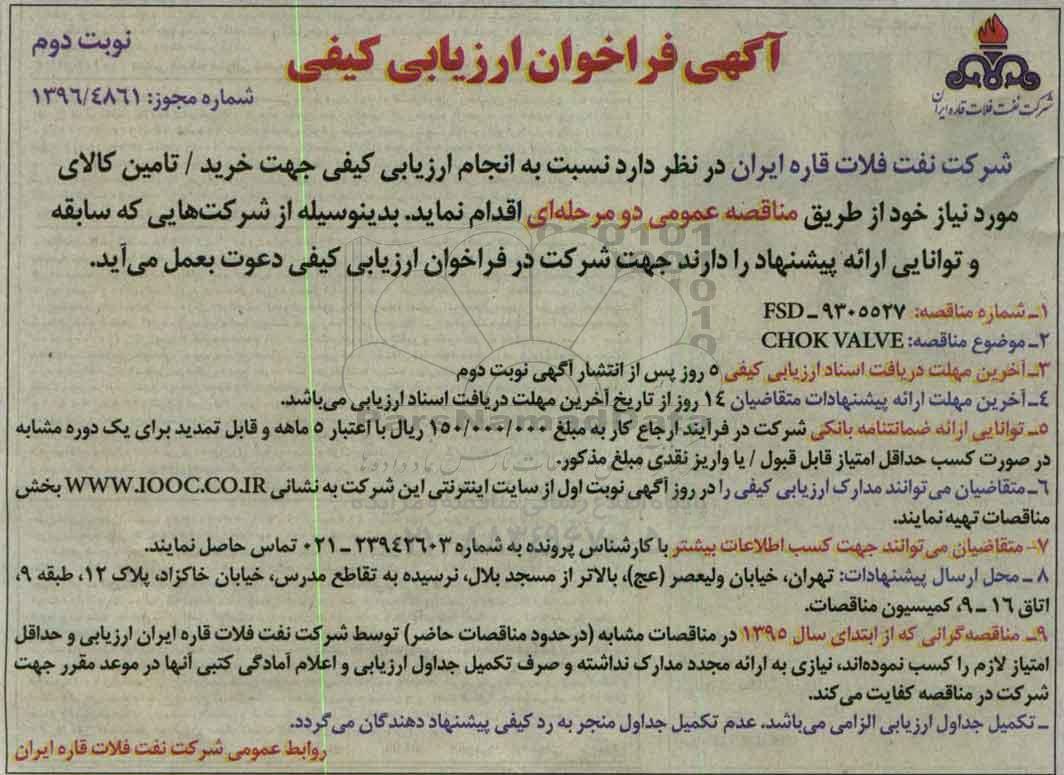 نوبت دوم
آگهی فراخوان ارزیابی کیفی
شرکت نفت فلات قاره ایران
شماره مجوز: ۱۳۹۶/٤٨٦١
شرکت نفت فلات قاره ایران در نظر دارد نسبت به انجام ارزیابی کیفی جهت خرید / تامین کالای
مورد نیاز خود از طریق مناقصه عمومی دو مرحله‌ای اقدام نماید. بدینوسیله از شرکت‌هایی که سابقه
و توانایی ارائه پیشنهاد را دارند جهت شرکت در فراخوان ارزیابی کیفی دعوت بعمل می‌آید.
۱ـ شماره مناقصه: FSD ـ ۹۳۰۵۵۲۷
۲ـ موضوع مناقصه: CHOK VALVE
۳ـ آخرین مهلت دریافت اسناد ارزیابی کیفی ۵ روز پس از انتشار آگهی نوبت دوم
٤ـ آخرین مهلت ارائه پیشنهادات متقاضیان ۱٤ روز از تاریخ آخرین مهلت دریافت اسناد ارزیابی می‌باشد.
۵ـ توانایی ارائه ضمانتنامه بانکی شرکت در فرآیند ارجاع کار به مبلغ ۱۵۰/۰۰۰/۰۰۰ ریال با اعتبار ۵ ماهه و قابل تمدید برای یک دوره مشابه
در صورت کسب حداقل امتیاز قابل قبول / یا واریز نقدی مبلغ مذکور.
۶ـ متقاضیان می‌توانند مدارک ارزیابی کیفی را در روز آگهی نوبت اول از سایت اینترنتی این شرکت به نشانی WWW.IOOC.CO.IR بخش
مناقصات تهیه نمایند.
۷- متقاضیان می‌توانند جهت کسب اطلاعات بیشتر با کارشناس پرونده به شماره ۲۳۹٤۲۶۰۳ ـ ۰۲۱ تماس حاصل نمایند.
۸ ـ محل ارسال پیشنهادات: تهران، خیابان ولیعصر (عج)، بالاتر از مسجد بلال، نرسیده به تقاطع مدرس، خیابان خاکزاد، پلاک ۱۲، طبقه ۹،
اتاق ۱۶ ـ ۹، کمیسیون مناقصات.
۹ـ مناقصه‌گرانی که از ابتدای سال ۱۳۹۵ در مناقصات مشابه (درحدود مناقصات حاضر) توسط شرکت نفت فلات قاره ایران ارزیابی و حداقل
امتیاز لازم را کسب نموده‌اند، نیازی به ارائه مجدد مدارک نداشته و صرف تکمیل جداول ارزیابی و اعلام آمادگی کتبی آنها در موعد مقرر جهت
شرکت در مناقصه کفایت می‌کند.
ـ تکمیل جداول ارزیابی الزامی می‌باشد. عدم تکمیل جداول منجر به رد کیفی پیشنهاد دهندگان می‌گردد.
روابط عمومی شرکت نفت فلات قاره ایران